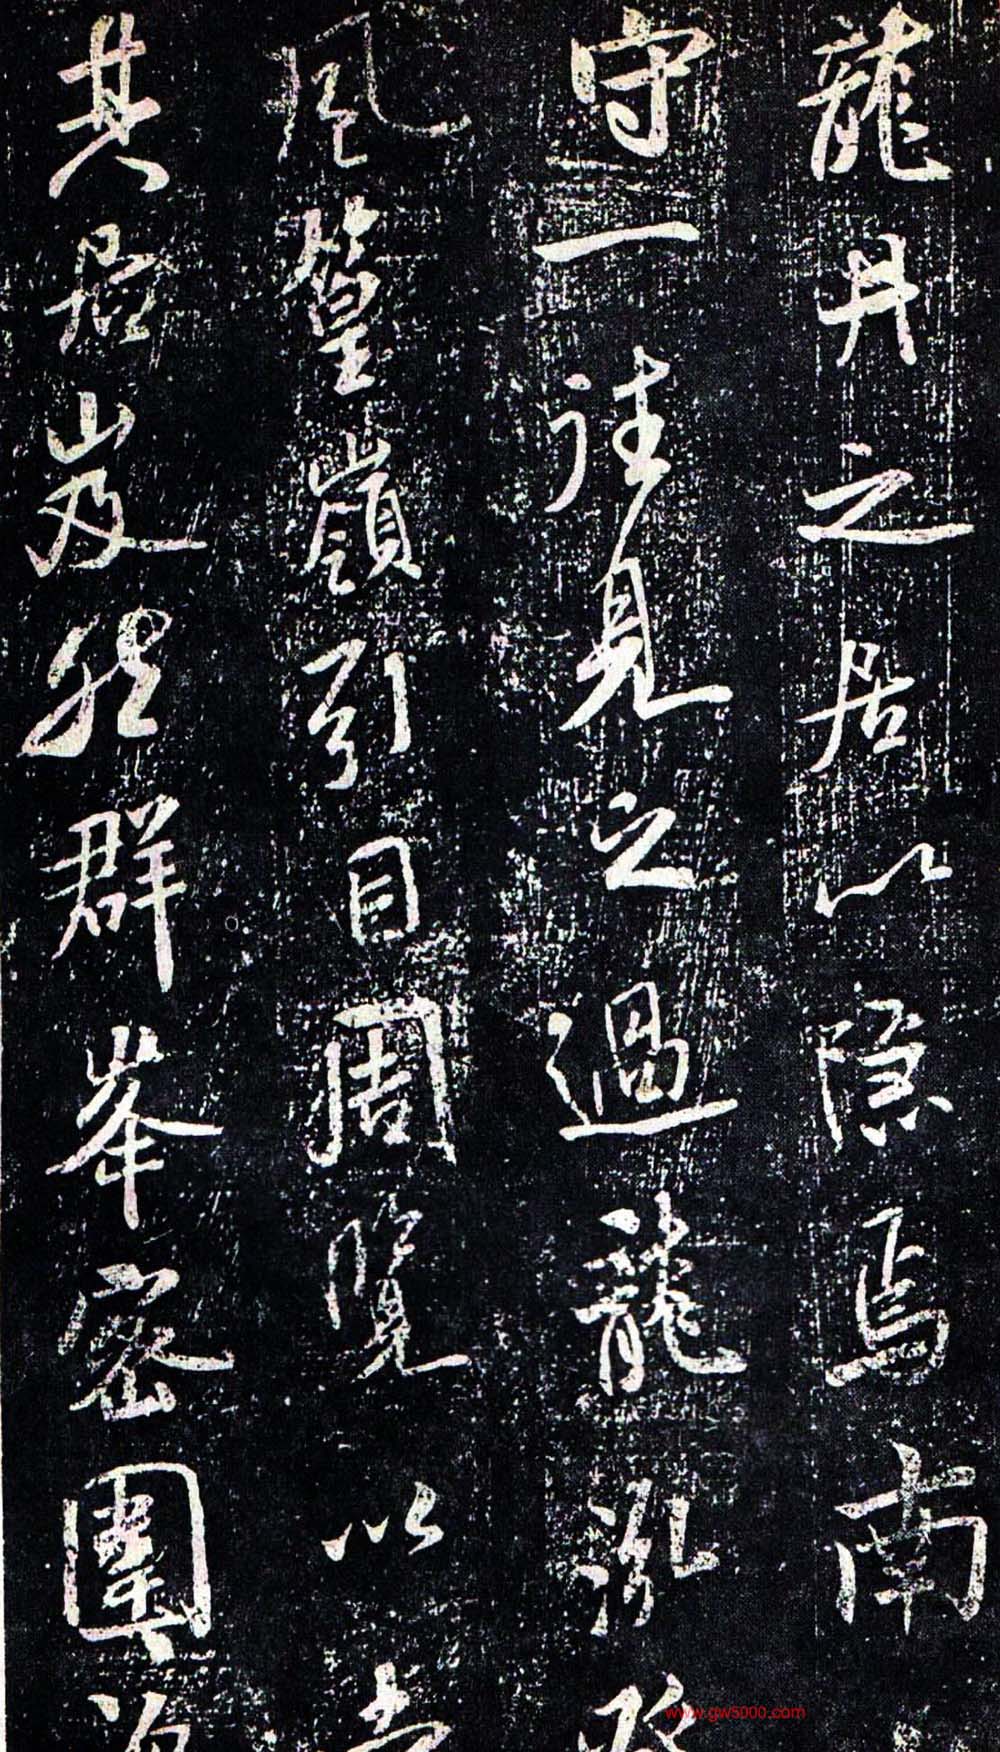 龍井之居以隐焉南
守一往見之過龍泓
風篁嶺引目周覽以
其居岌然群峯密圍
www.gw5000.com